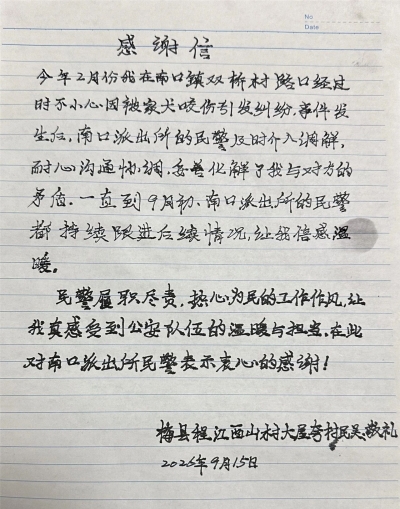 No
Date
感谢信
今年2月份我在南口镇双桥村路口经过
时不小心因被家犬咬伤引发纠纷,事件发
生后,南口派出所的民警及时介入调解,
耐心沟通协调,妥善化解了我与对方的
矛盾。一直到9月初,南口派出所的民警
都持续跟进后续情况,让我倍感温
暖。
民警履职尽责,热心为民的工作作风,让
我真感受到公安队伍的温暖与担当,在此
对南口派出所民警表示衷心的感谢!
梅县程江西山村大屋夸村民吴敬礼
2025年9月15日